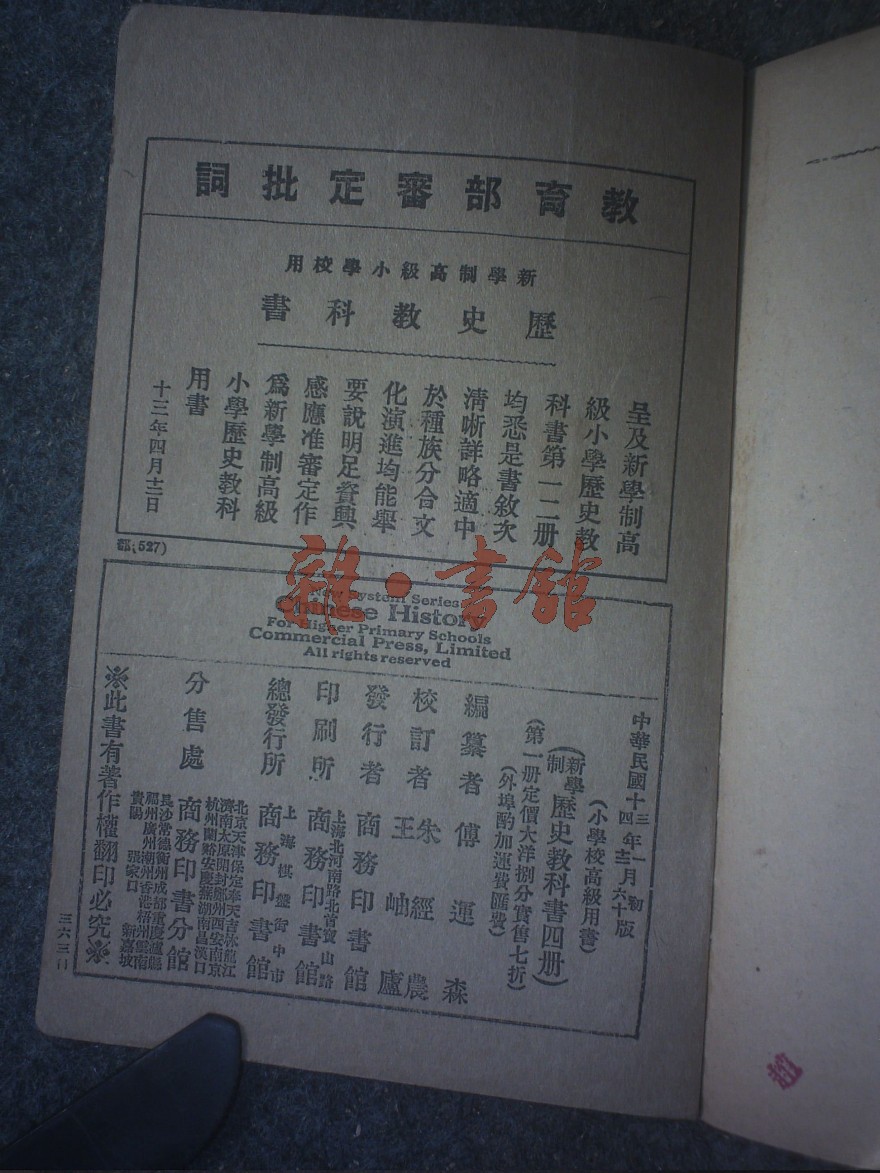 教育部審定批詞
新學制高級小學校用
歷史教科書
呈及新學制高
級小學歷史教
科書第一二册
均悉是書敘次
清晰詳略適中
於種族分合文
化演進均能舉
要說明足資興
感應准審定作
爲新學制高級
小學歷史教科
用書
十三年四月十二日
部(527)
雜·書館
New System Series
Chinese History
For Higher Primary Schools
Commercial Press, Limited
All rights reserved
中華民國十三年一月初版
十四年十二月六十版
(小學校高級用書)
(新學制歷史教科書四册)
(第一册定價大洋捌分實售七折)
(外埠酌加運費匯費)
編纂者 傅運森
校訂者 朱經農
王岫廬
發行者 商務印書館
印刷所 上海北河南路北首寶山路
商務印書館
總發行所 上海棋盤街中市
商務印書館
分售處 北京天津保定奉天吉林龍江
濟南太原開封鄭州西安南京
杭州蘭谿安慶蕪湖南昌漢口
商務印書分館
長沙常德衡州成都重慶瀘縣
福州廣州潮州香港梧州雲南
貴陽 張家口 新嘉坡
※此書有著作權翻印必究※